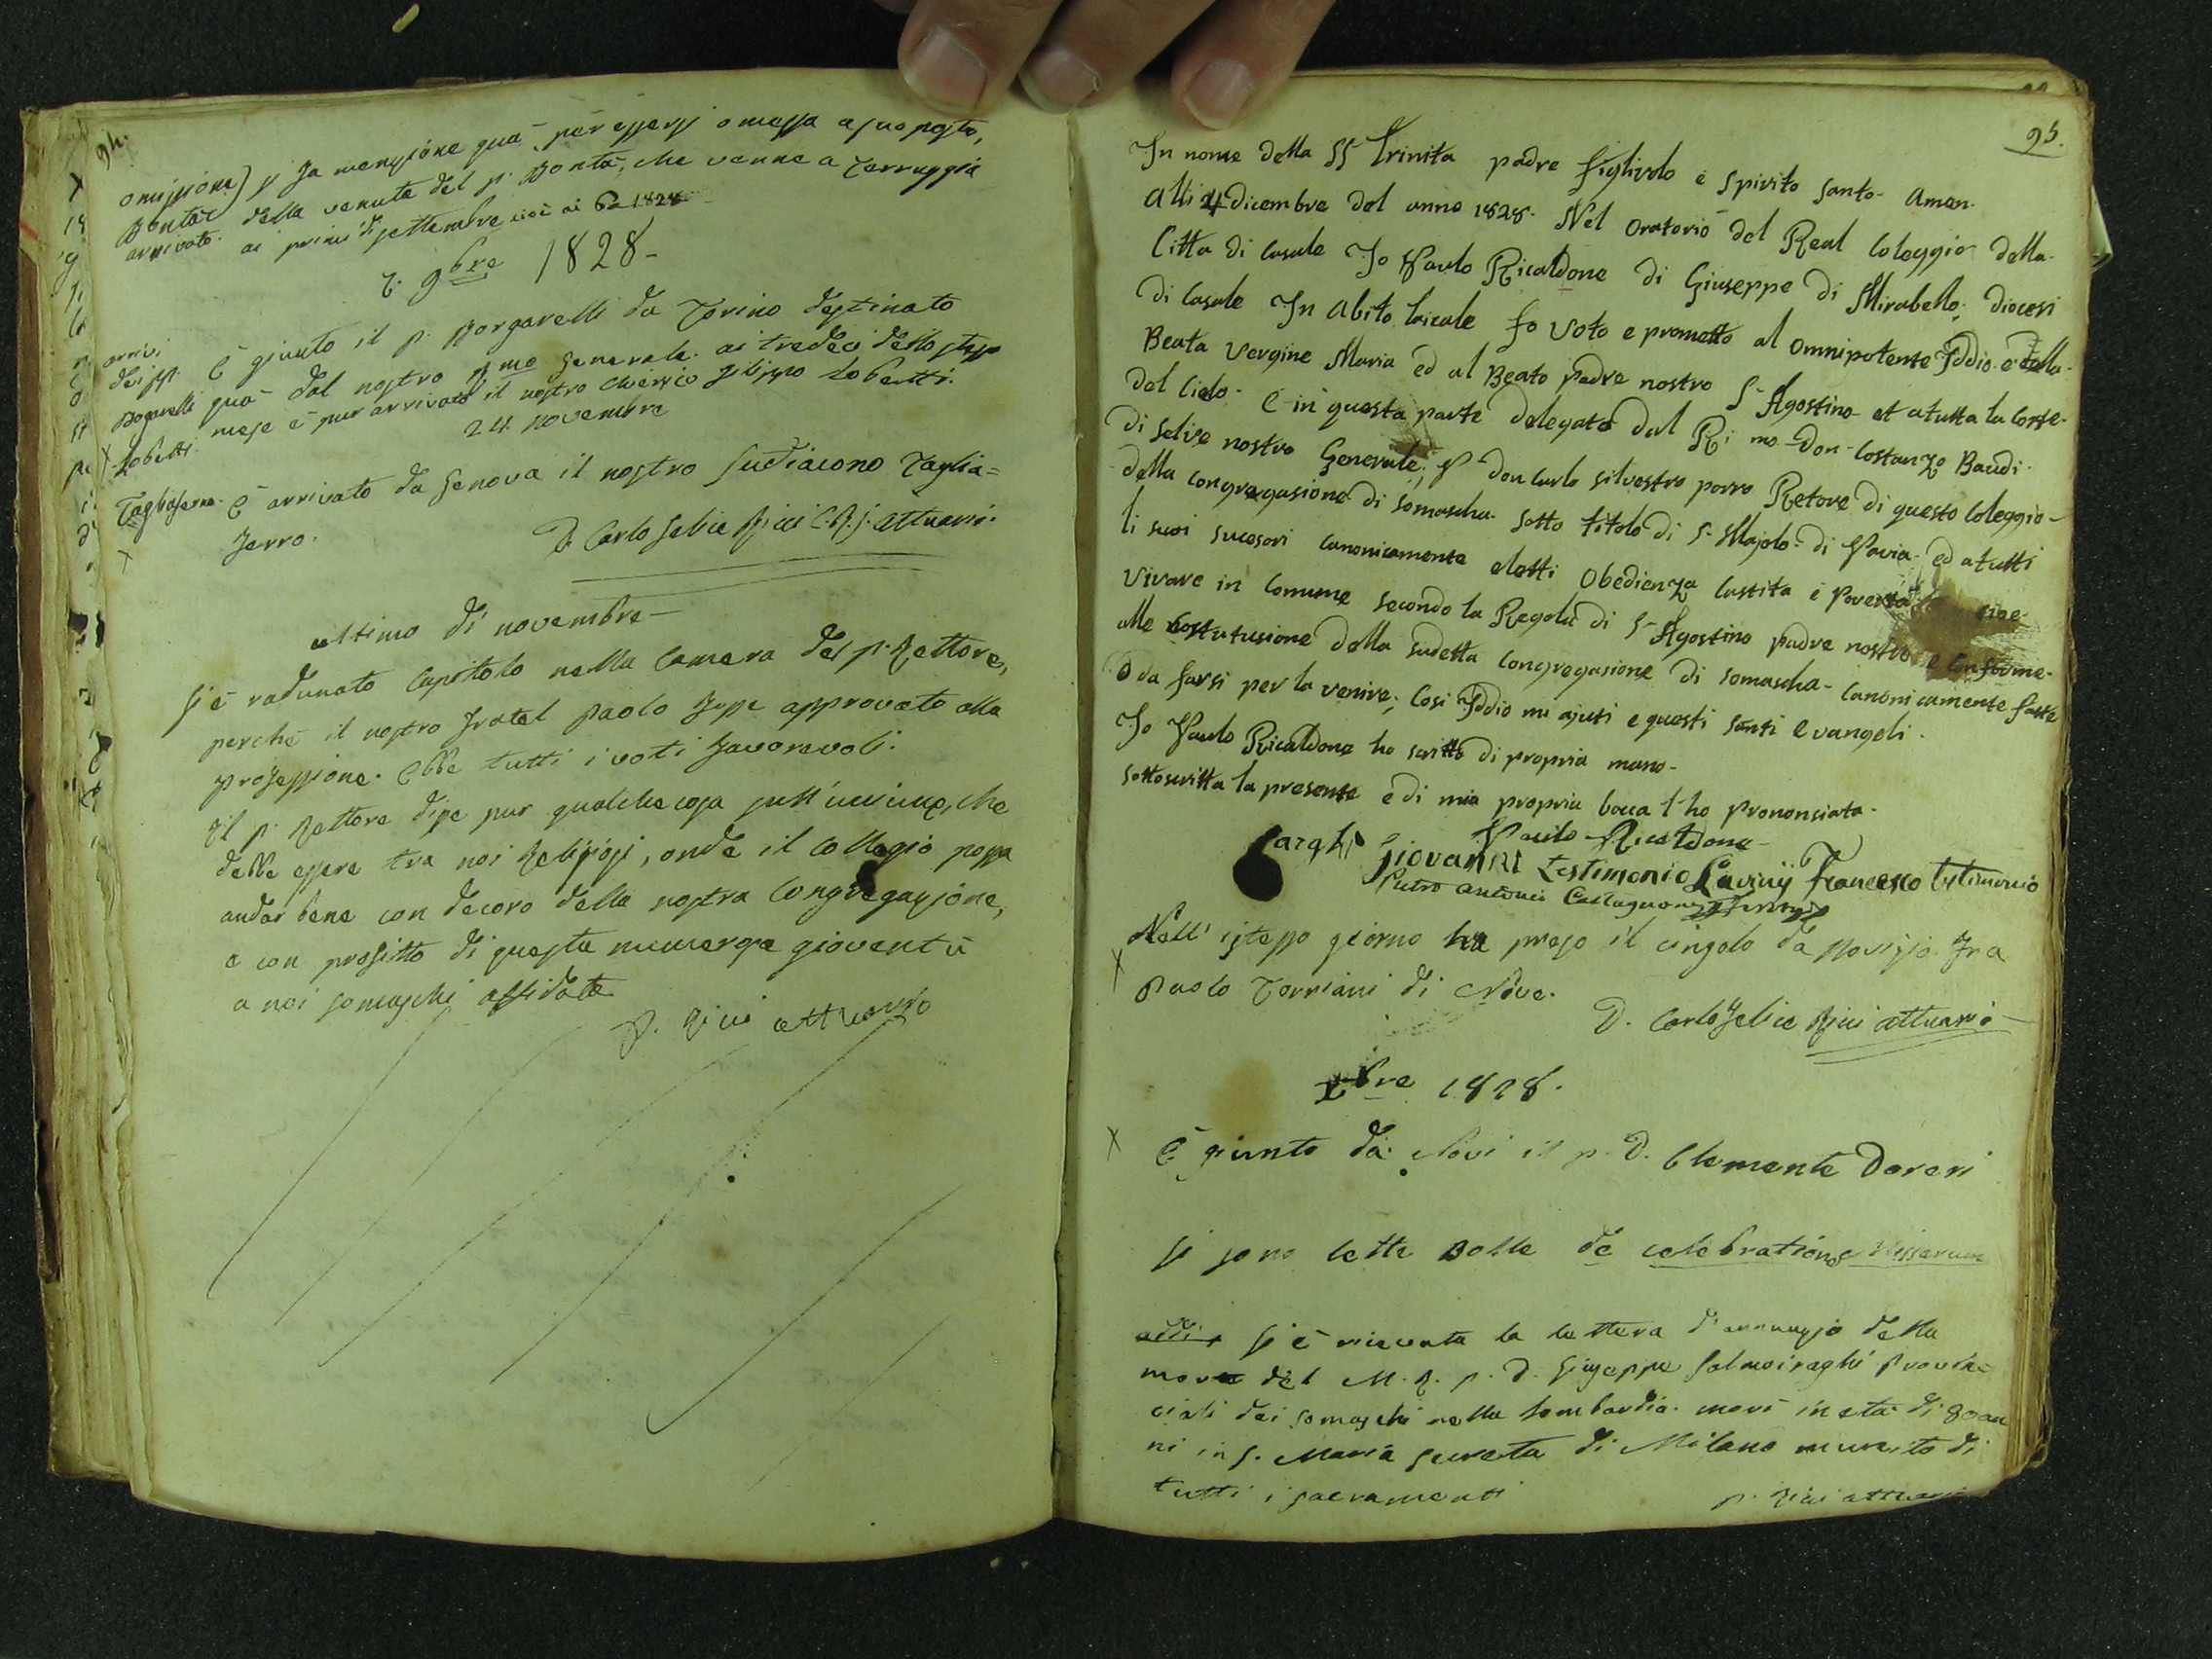 94.
omissione) si fa menzione quà per essersi omessa a suo posto,
Bontà della venuta del p. Bontà, che venne a Terruggia
arrivato. ai primi di settembre cioè ai 6 1828
9bre 1828-
arrivi
dei pp. È giunto il p. Borgarelli da Torino destinato
Bogarelli quà dal nostro Rmo generale. ai tredeci dello stesso
mese è pur arrivato il nostro chierico Filippo Lobetti.
X Lobetti.
24 novembre
Tagliaferro. È arrivato da Genova il nostro Sudiacono Taglia=
ferro.
D. Carlo Felice Ricci C.R.S. attuario.
ultimo di novembre-
Si è radunato Capitolo nella Camera del p. Rettore,
perchè il nostro fratel paolo fosse approvato alla
professione. Ebbe tutti i voti favorevoli.
Il p. Rettore disse pur qualche cosa sull'unione, che
deve essere tra noi Religiosi, onde il Collegio possa
andar bene con decoro della nostra Congregazione,
e con profitto di questa numerosa gioventù
a noi somaschi affidata.
P. Ricci attuario
95.
In nome della SS Trinita padre figlivolo e Spirito Santo- Amen-
Alli 4 dicembre del anno 1828. Nel Oratorio del Real Coleggio della-
Citta di Casale Io Paulo Ricaldone di Giuseppe di Mirabello; diocesi
di Casale In Abito laicale fo Voto e prometto al Omnipotente Iddio e della-
Beata Vergine Maria ed al Beato padre nostro S. Agostino et a tutta la Corte-
del Cielo- È in questa parte delegato dal Ri mo Don Costanzo Baudi-
di Selve nostro Generale; P Don Carlo Silvestro porro Retore di questo Coleggio-
della congregasione di Somascha- Sotto titolo di S. Majolo- di Pavia- ed a tutti
li suoi sucesori canonicamente eletti Obedienza Castita e Poverta cioe-
Vivare in Comune secondo la Regola di S. Agostino padre nostro e conforme-
alle costutusione della sudetta congregasione di Somascha- Canonicamente fatte
o da farsi per la venire; Cosi Iddio mi ajuti e questi santi evangeli.
Io Paulo Ricaldone ho scritto di propria mano-
sottoscritta la presente e di mia propria bocca l'ho prononsiata.
Paulo Ricaldone-
Sarghi Giovanni Testimonio Lavinij Francesco testimonio
Pietro Antonio Castagnone
Nell' istesso giorno ha preso il cingolo da Novizio Fra
X
Paolo Torriani di Nove.
D. Carlo Felice Ricci attuario-
Xbre 1828.
X È giunto da Novi il p. D. Clemente Doreri
Si sono lette Bolle de celebratione Missarum
Si è ricevuta la lettera d'annunzio della
morte del M. R. p. D. Giuseppe Salmoiraghi Provin=
ciali dei somaschi nella Lombardia. morì in età di 80 an
ni in S. Maria Secreta di Milano munito di
tutti i sacramenti
p. Ricci attuario